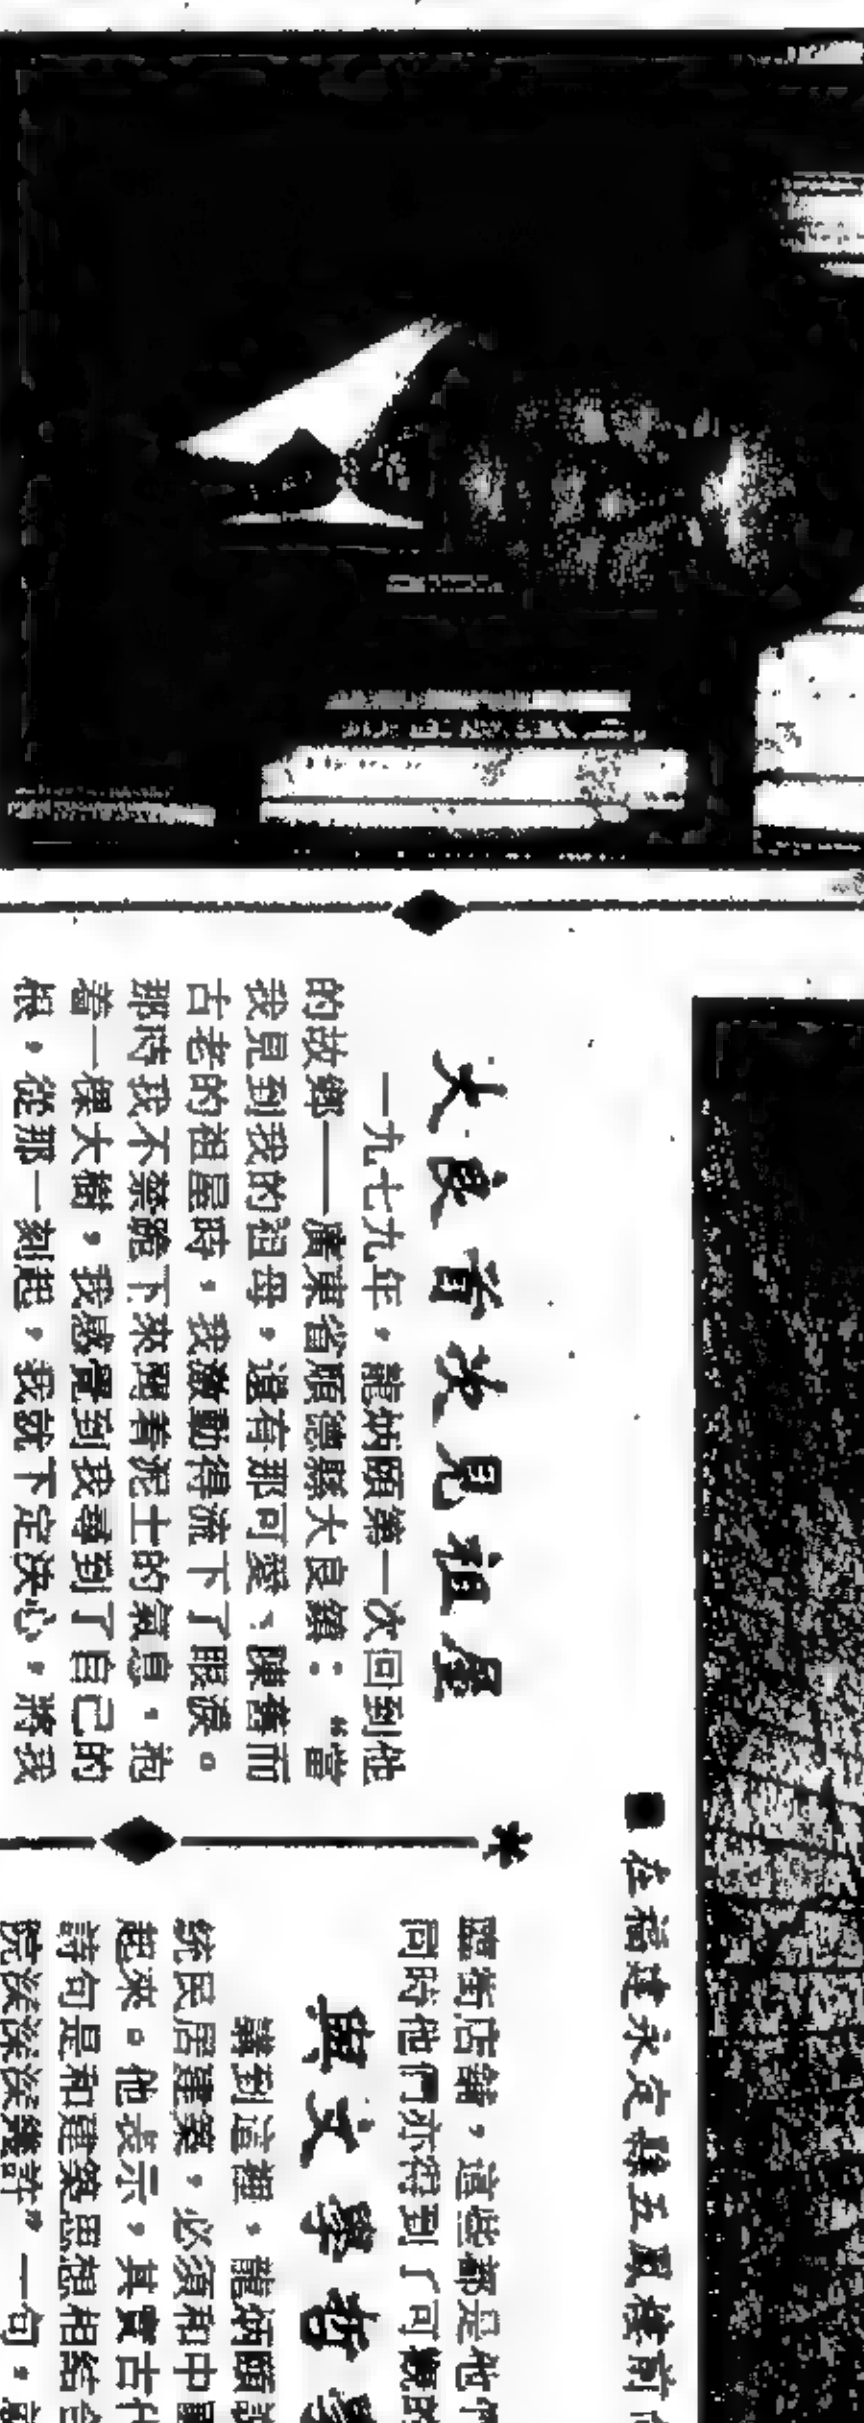 ■在福建永定縣五鳳樓前
大良首次見祖屋
一九七九年，龍炳頤第一次回到他
的故鄉——廣東省順德縣大良鎮：“當
我見到我的祖母，還有那可愛、陳舊而
古老的祖屋時，我激動得流下了眼淚。
那時我不禁跪下來聞着泥土的氣息，抱
着一棵大樹，我感覺到我尋到了自己的
根，從那一刻起，我就下定決心，將我
街店鋪，這些都是他們
同時他們亦得到了可觀的
與文學哲學
講到這裡，龍炳頤
統民居建築，必須和中國
起來。他表示，其實古代
詩句是和建築思想相結合
院深深深幾許”一句，意